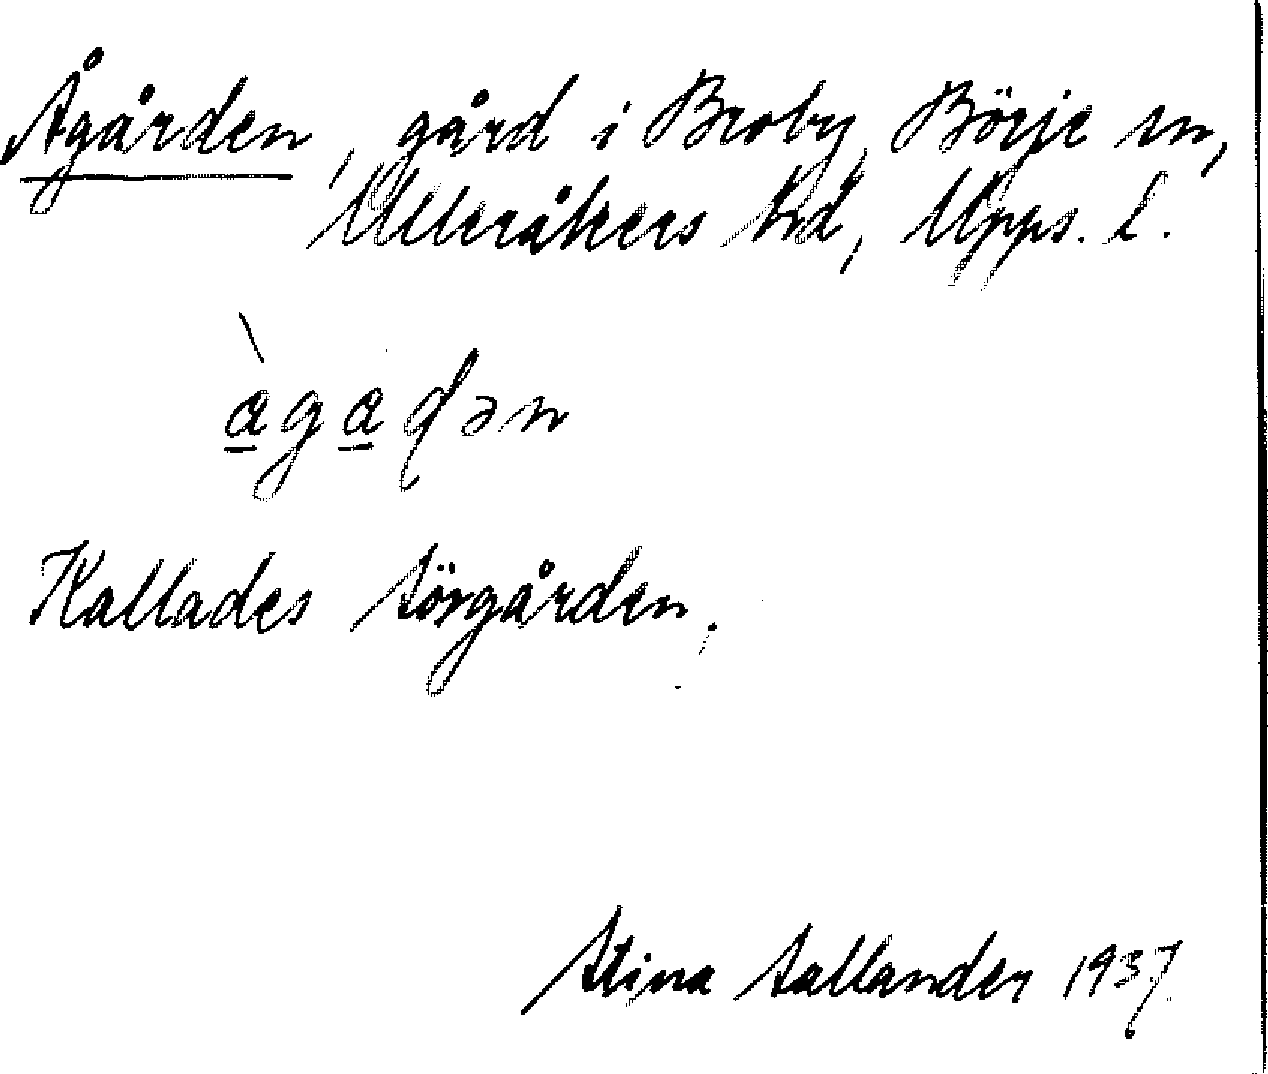 Ågården, gård i Broby, Börje sn,
Ulleråkers hd, Upps. l.
Kallades Sörgården.
Stina Sallander 1937